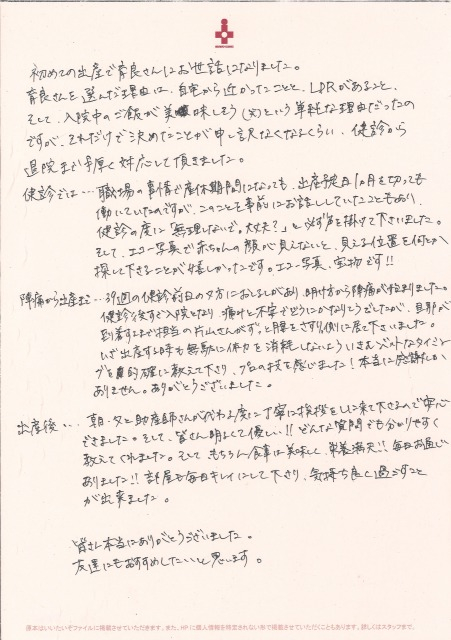 初めての出産で育良さんにお世話になりました。
育良さんを選んだ理由は、自宅から近かったことと、LDRがあること、
そして、入院中のご飯が美味しそう(笑)という単純な理由だったの
ですが、それだけで決めたことが申し訳なくなるくらい、健診から
退院まで手厚く対応して頂きました。
健診では… 職場の事情で産休期間になっても、出産予定日1ヵ月を切っても
働いていたのですが、このことも事前にお話ししていたこともあり、
健診の度に「無理しないで。大丈夫?」と必ず声を掛けて下さいました。
そして、エコー写真で赤ちゃんの顔が見えないと、見える位置を何とか
探して下さることが嬉しかったです。エコー写真、宝物です!!
陣痛から出産まで…39週の健診前日の夕方におしるしがあり、明け方から陣痛が始まりました。
健診後すぐ入院となり、痛みと不安でどうにかなりそうでしたが、旦那が
到着するまで担当の片山さんがずっと腰をさすり側に居て下さいました。
いざ出産する時も無駄に体力を消耗しないよういきむベストなタイミン
グを的確に教えて下さり、プロの技を感じました!本当に感謝しか
ありません。ありがとうございました。
出産後… 朝・夕と助産師さんが代わる度に丁寧に挨拶をしに来て下さるので安心
できました。そして、皆さん明るくて優しい!!どんな質問でも分かりやすく
教えてくれました。そして もちろん食事は美味しく、栄養満天!!毎日お通じ
ありました!!部屋も毎日キレイにして下さり、気持ち良く過ごすこと
が出来ました。
皆さん本当にありがとうございました。
友達にもおすすめしたいと思います。
原本はいいたいぞファイルに掲載させていただきます。また、HPに個人情報を特定されない形で掲載させていただくこともあります。詳しくはスタッフまで。